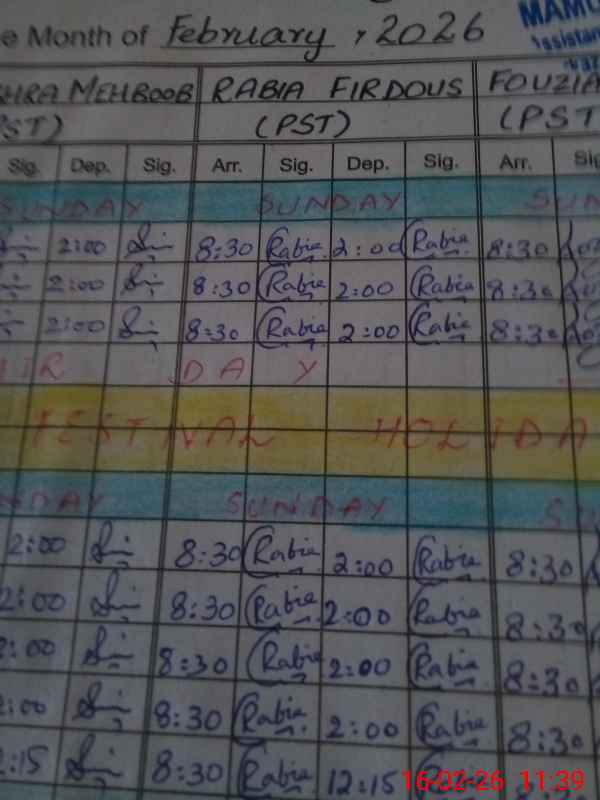 e Month of February, 2026
MAMO
Assistan
HRA MEHBOOB RABIA FIRDOUS FOUZIA
PST) (PST) (PST
Sig. Dep. Sig. Arr. Sig. Dep. Sig. Arr. Sig
SUNDAY SUNDAY SUN
2:00 8:30 Rabia 2:00 Rabia 8:30
2:00 8:30 Rabia 2:00 Rabia 8:30
2:00 8:30 Rabia 2:00 Rabia 8:30
DAY
FESTIVAL HOLIDA
NDAY SUNDAY SU
2:00 8:30 Rabia 2:00 Rabia 8:30
2:00 8:30 Rabia 2:00 Rabia 8:30
2:00 8:30 Rabia 2:00 Rabia 8:30
2:00 8:30 Rabia 2:00 Rabia 8:30
2:15 8:30 Rabia 12:15
16-02-26 11:39